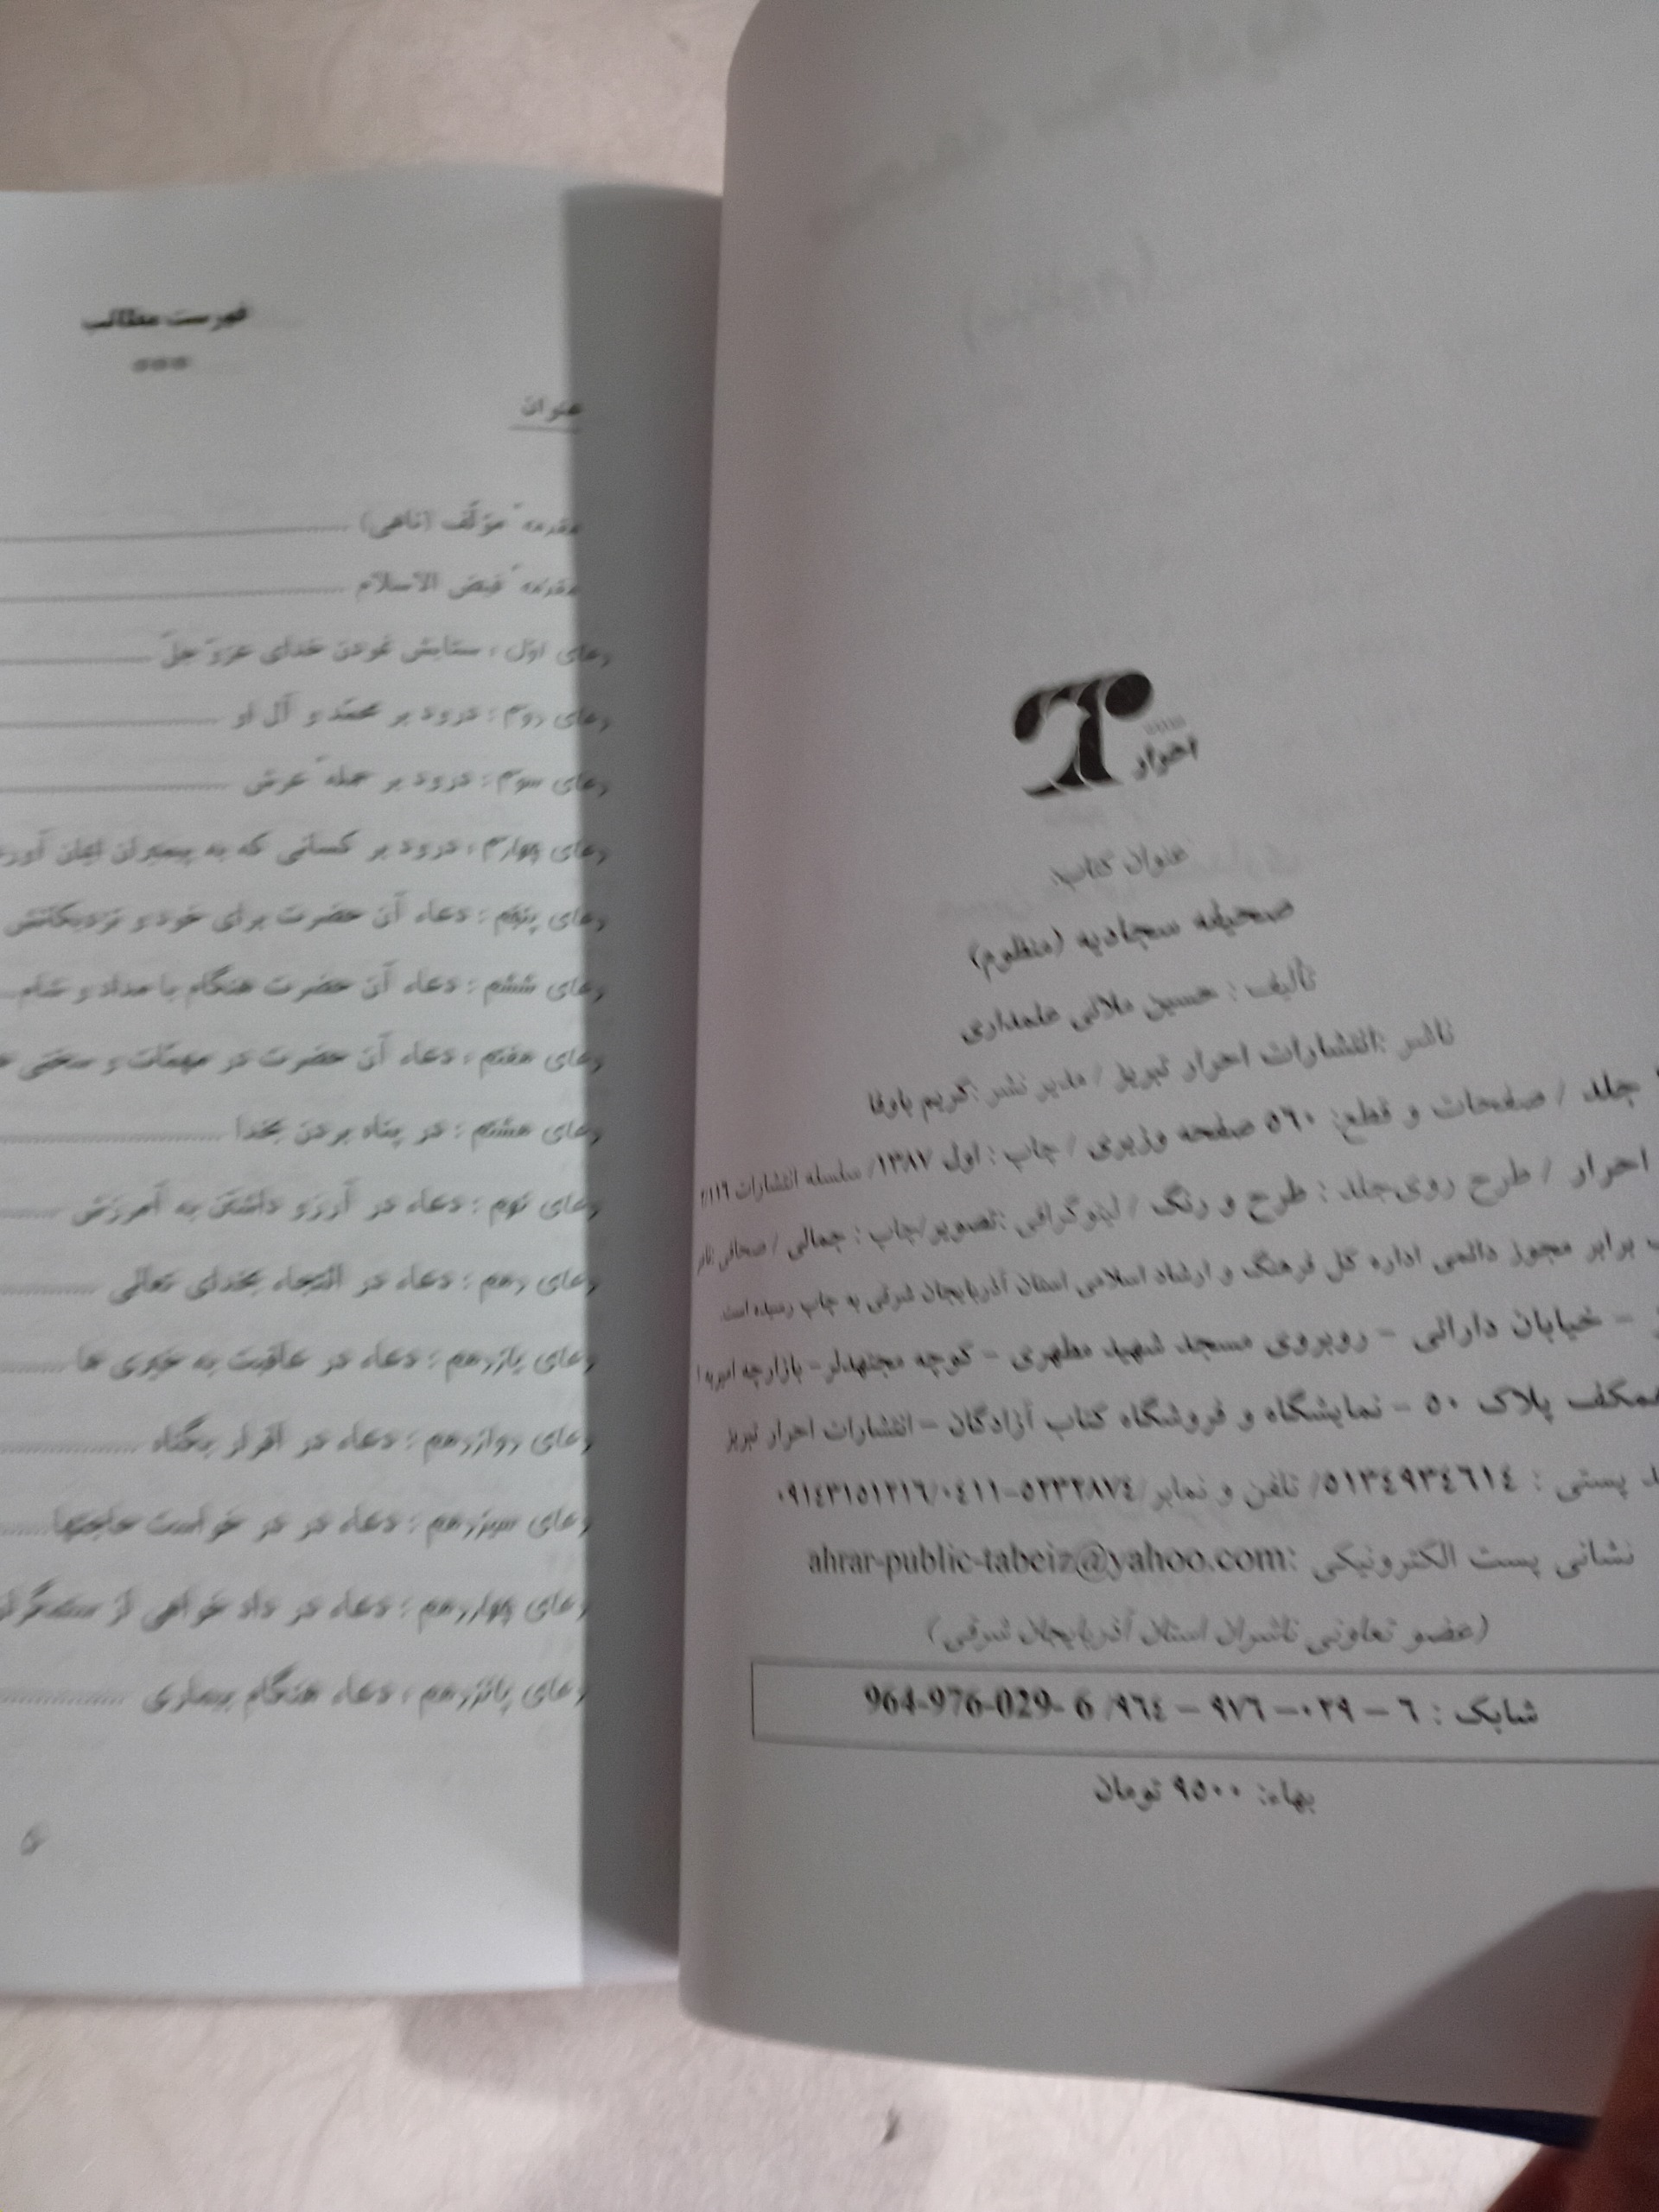 احرار
عنوان کتاب:
صحیفه سجادیه (منظوم)
تألیف : حسین ملائی علمداری
ناشر :انتشارات احرار تبریز / مدیر نشر :کریم باوفا
جلد / صفحات و قطع: ۵٦٠ صفحه وزیری / چاپ : اول /۱۳۸۷/ سلسله انتشارات
احرار / طرح روی‌جلد : طرح و رنگ / لیتوگرافی :تصویر/چاپ : جمالی / صحافی
برابر مجوز دائمی اداره کل فرهنگ و ارشاد اسلامی استان آذربایجان شرقی به چاپ رسیده است.
– خیابان دارائی – روبروی مسجد شهید مطهری – کوچه مجتهدلر– بازارچه امیریه
همکف پلاک ۵۰ – نمایشگاه و فروشگاه کتاب آزادگان – انتشارات احرار تبریز
پستی : ۵۱۳٤۹۳٤٦۱٤/ تلفن و نمابر/۵۲۳۲۸۷٤–۰٤۱۱/۰۹۱٤۳۱۵۱۲۱٦
نشانی پست الکترونیکی :ahrar-public-tabriz@yahoo.com
(عضو تعاونی ناشران استان آذربایجان شرقی)
شابک : ٦ – ۰۲۹– ۹۷٦ – ۹٦٤/ 964-976-029- 6
بهاء: ۹۵۰۰ تومان
فهرست مطالب
عنوان
مقدمهٔ مؤلّف (ناهی)
مقدمهٔ فیض الاسلام
دعای اوّل : ستایش نمودن خدای عزوّ جلّ
دعای دوّم : درود بر محمّد و آل او
دعای سوّم : درود بر حملهٔ عرش
دعای چهارم : درود بر کسانی که به پیمبران ایمان
دعای پنجم : دعاء آن حضرت برای خود و نزدیکانش
دعای ششم : دعاء آن حضرت هنگام بامداد و شام
دعای هفتم : دعاء آن حضرت در مهمّات و سختی
دعای هشتم : در پناه بردن بخدا
دعای نهم : دعاء در آرزو داشتن به آمرزش
دعای دهم : دعاء در التجاء بخدای تعالی
دعای یازدهم : دعاء در عاقبت به خیری ها
دعای دوازدهم : دعاء در اقرار بگناه
دعای سیزدهم : دعاء در در خواست حاجتها
دعای چهاردهم : دعاء در داد خواهی از ستمگران
دعای پانزدهم : دعاء هنگام بیماری
۵